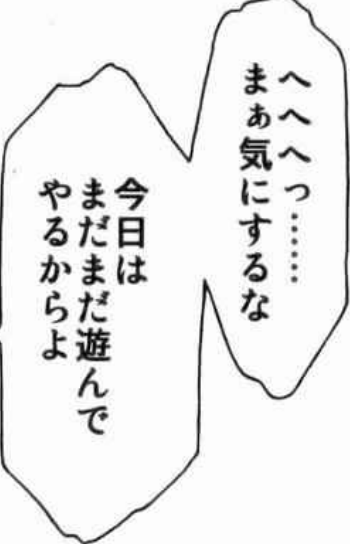 へへへっ……
まぁ気にするな
今日は
まだまだ遊んで
やるからよ